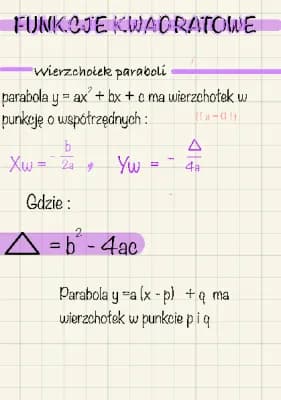 FUNKCJE KWADRATOWE
Wierzchołek paraboli
parabola y = ax² + bx + c ma wierzchołek w
punkcję o współrzędnych :
Xw = - b/2a , Yw = - Δ/4a
Gdzie :
Δ = b² - 4ac
Parabola y = a (x - p) + q ma
wierzchołek w punkcie p i q